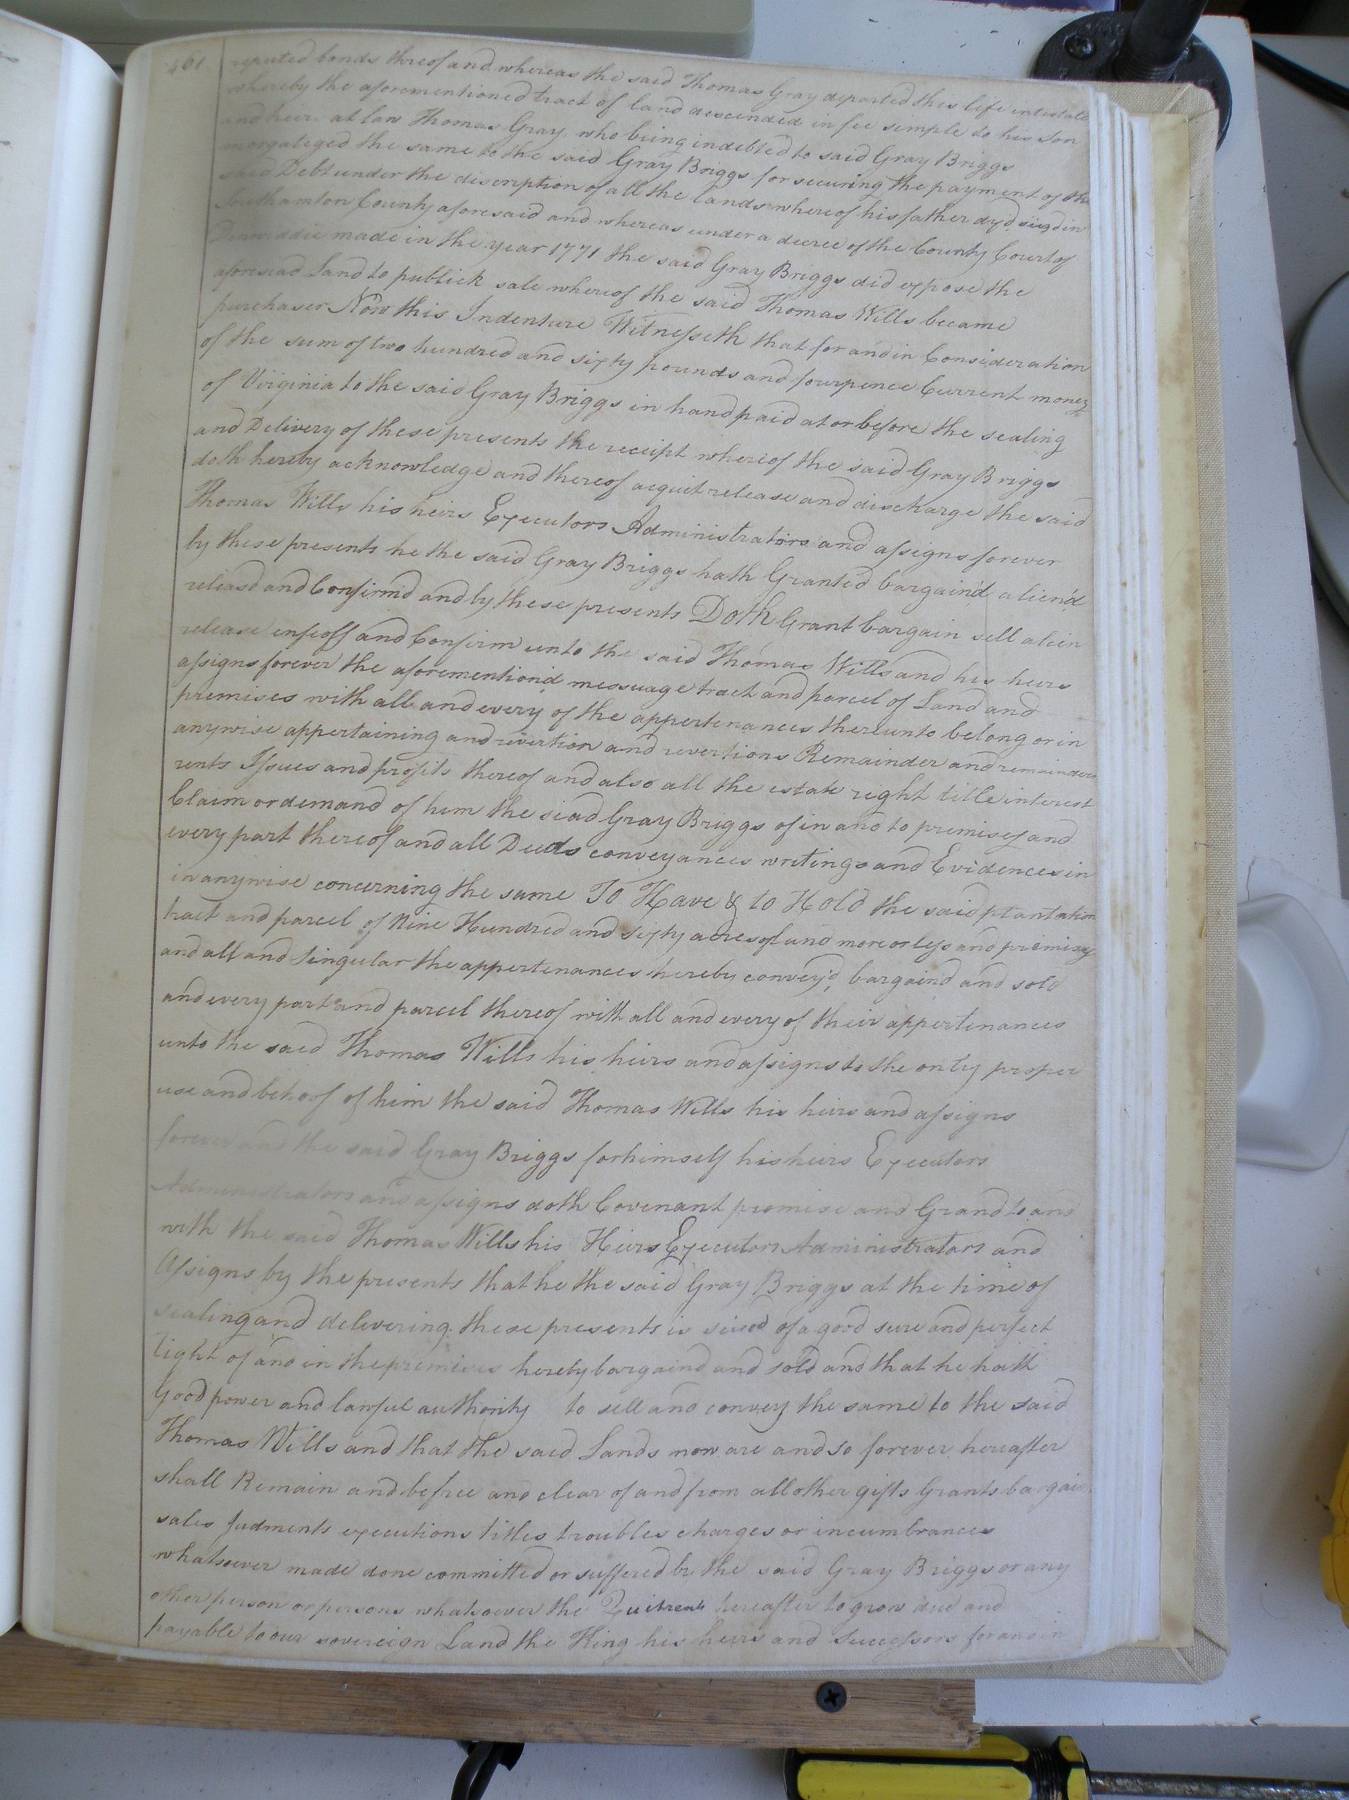 461
reputed bonds threof and whereas the said Thomas Gray departed this life intestate
whereby the aforementioned tract of land descended in fee simple to his son
and heir at law Thomas Gray who being indebted to said Gray Briggs
morgateged the same to the said Gray Briggs for securing the payment of the
said Debt under the discription of all the lands whereof his father dyd siezd in
Southamton County aforesaid and whereas under a decree of the County Court of
Dinwiddie made in the year 1771 the said Gray Briggs did expose the
aforesaid Land to publick sale whereof the said Thomas Wills became
purchaser Now this Indenture Witnesseth that for and in Consideration
of the sum of two hundred and sixty pounds and fourpence Current money
of Virginia to the said Gray Briggs in hand paid at or before the sealing
and Delivery of these presents the receipt whereof the said Gray Briggs
doth hereby acknowledge and thereof acquit release and discharge the said
Thomas Wills his heirs Executors Administrators and assigns forever
by these presents he the said Gray Briggs hath Granted bargain'd alien'd
releasd and Confirmd and by these presents Doth Grant bargain sell alein
release enfeoff and Confirm unto the said Thomas Wills and his heirs
assigns forever the aforementiond messuage tract and parcel of Land and
premises with all and every of the appertenances thereunto belong or in
anywise appertaining and revertion and revertions Remainder and remainders
rents Issues and profits thereof and also all the estate right title interest
Claim or demand of him the siad Gray Briggs of in and to premises and
every part thereof and all Deeds conveyances writings and Evidences in
in anywise concerning the same To Have & to Hold the said plantation
tract and parcel of Nine Hundred and sixty acres of land more or less and premises
and all and singular the appertenances hereby convey'd, bargaind and sold
and every part and parcel thereof with all and every of their appertenances
unto the said Thomas Wills his heirs and assigns to the only proper
use and behoof of him the said Thomas Wills his heirs and assigns
forever and the said Gray Briggs for himself his heirs Executors
Administrators and assigns doth Covenant promise and Grand to and
with the said Thomas Wills his Heirs Executors Administrators and
Assigns by the presents that he the said Gray Briggs at the time of
sealing and delivering these presents is sized of a good sure and perfect
tight of and in the premises hereby bargaind and sold and that he hath
Good power and lawful authority to sell and convey the same to the said
Thomas Wills and that the said Lands now are and so forever hereafter
shall Remain and be free and clear of and from all other gifts Grants bargain
sales Judments executions titles troubles charges or incumbrances
whatsoever made done committed or suffered by the said Gray Briggs or any
other person or persons whatsoever the Quitrents hereafter to grow due and
payable to our sovereign Land the King his heirs and Successors for and in